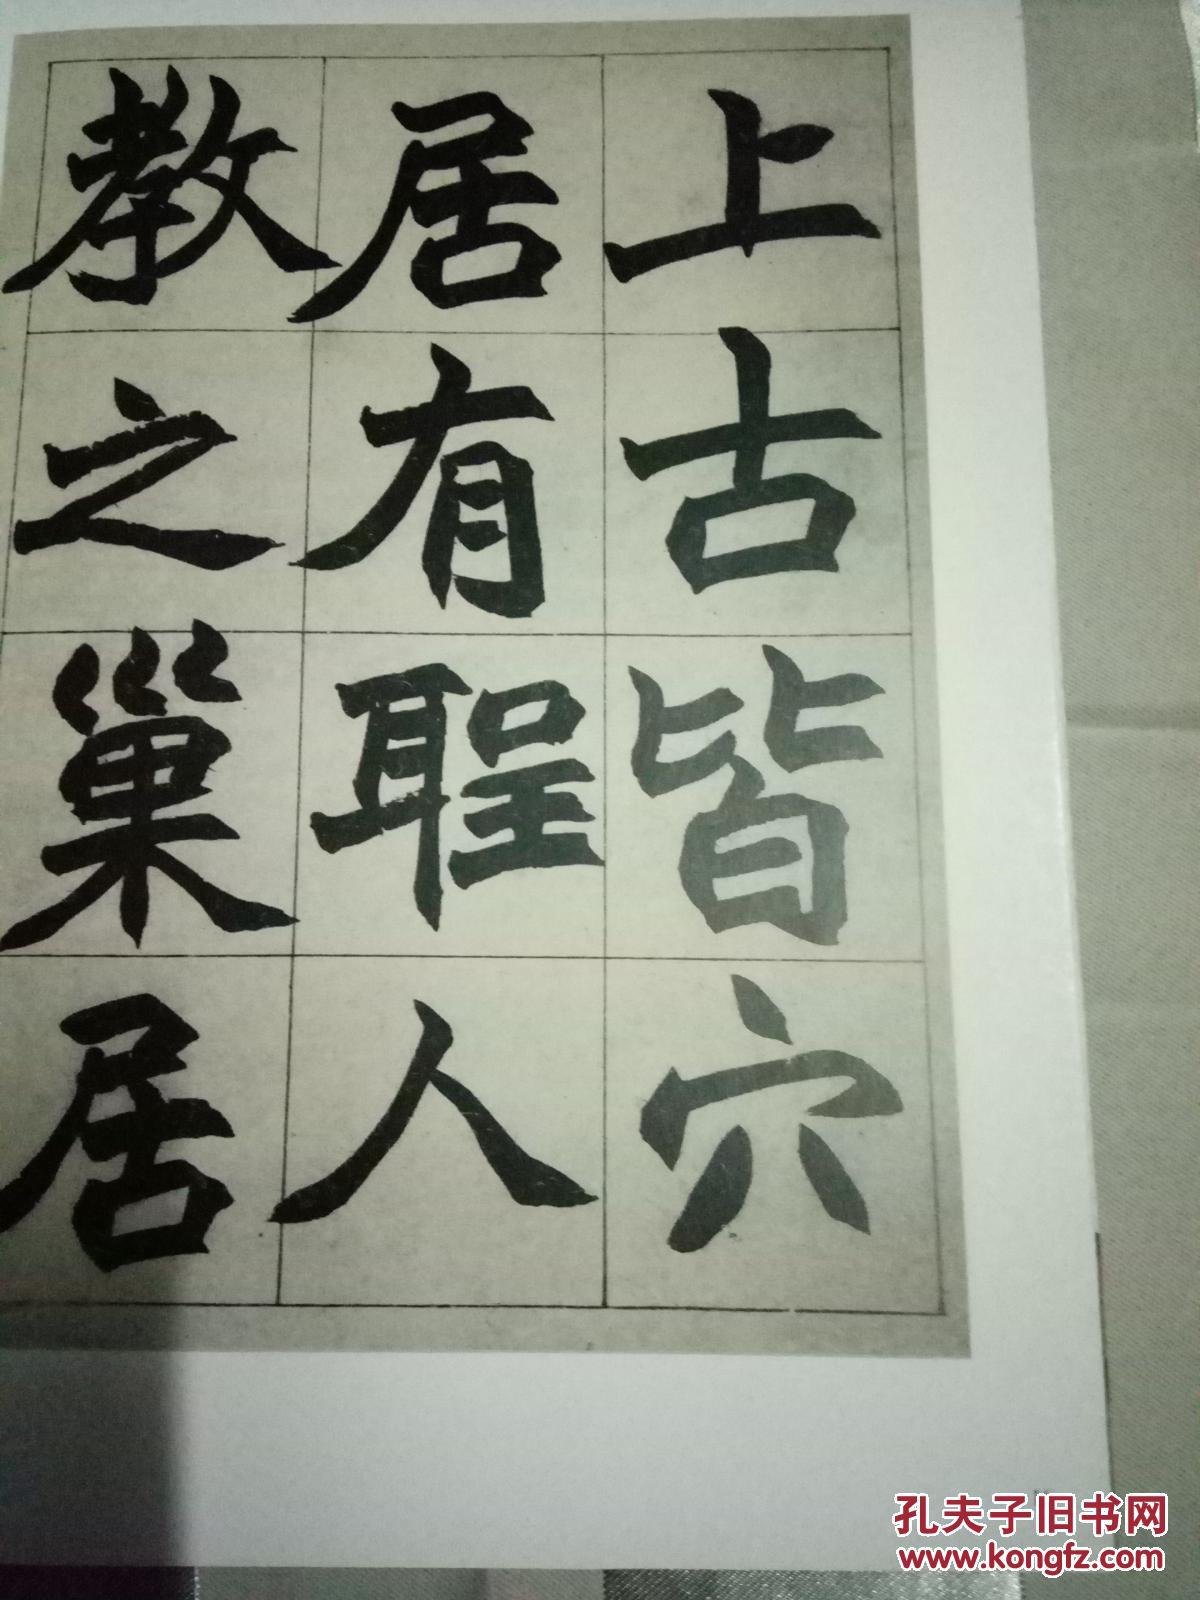 上古皆穴
居有聖人
教之巢居
孔夫子旧书网
www.kongfz.com